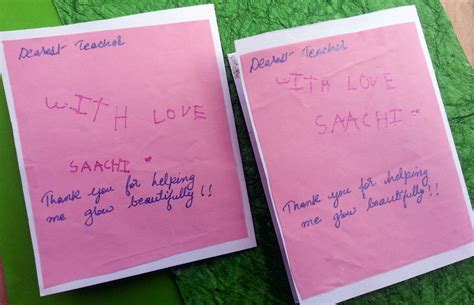 Dearest Teacher
WITH LOVE
SAACHI
Thank you for helping
me glow beautifully!!
Dearest Teacher
WITH LOVE
SAACHI
Thank you for helping
me glow beautifully!!